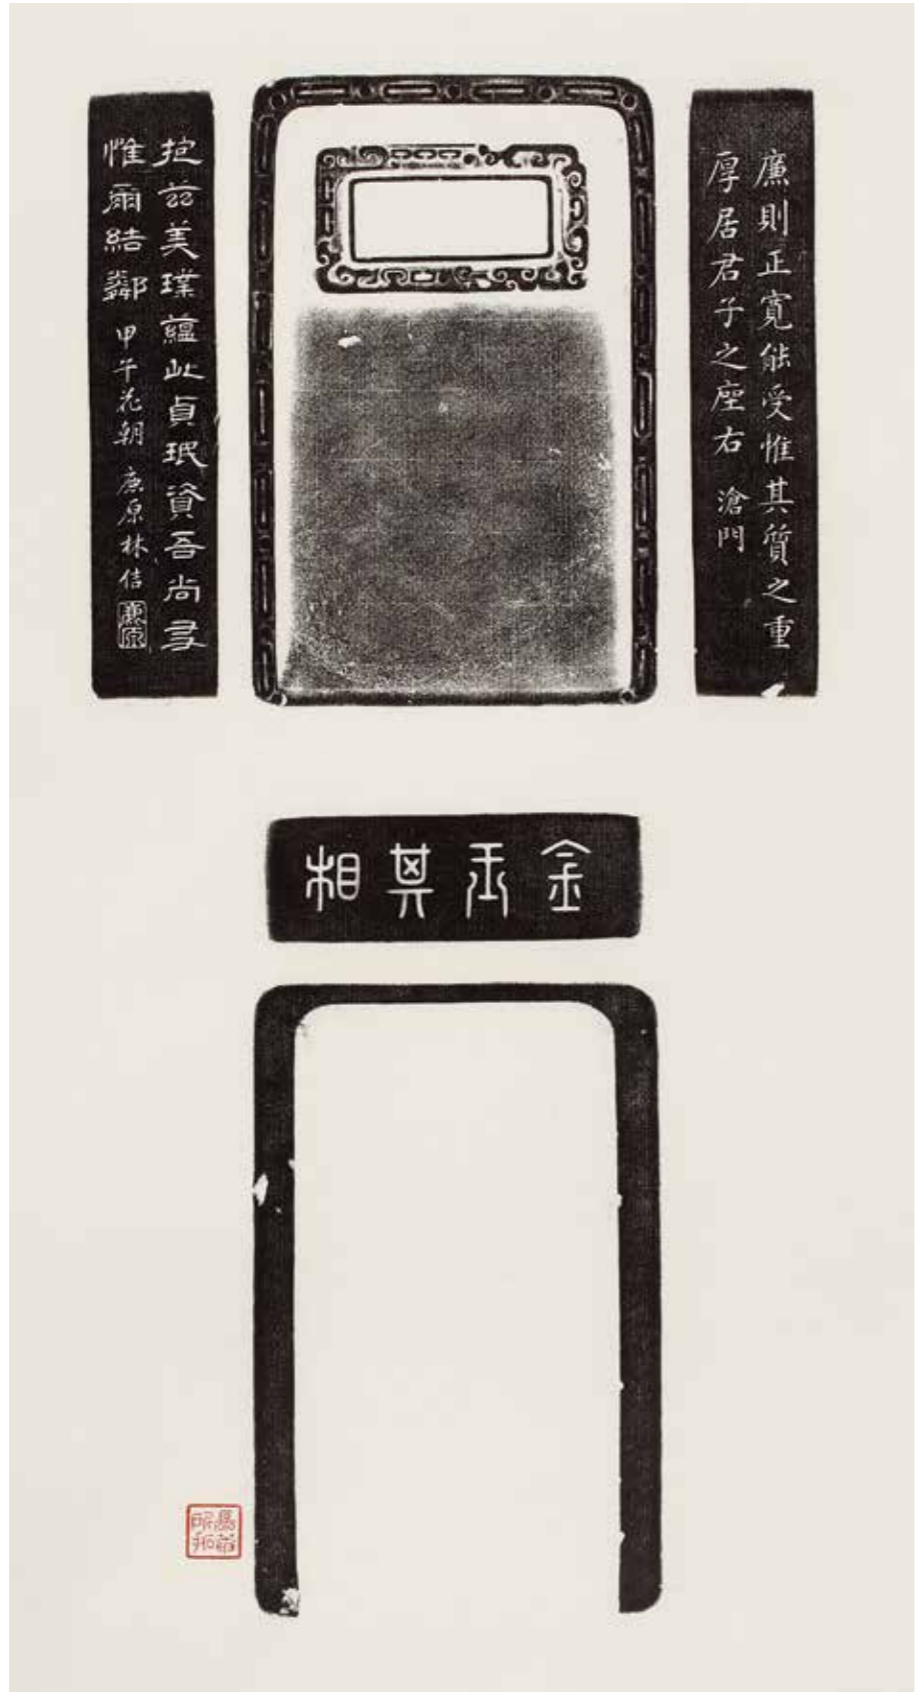 廉則正寬能受惟其質之重
厚居君子之座右 滄門
抱茲美璞蘊此貞珉資吾尚友
惟爾結鄰 甲午花朝 鹿原林佶
鹿原
金玉其相